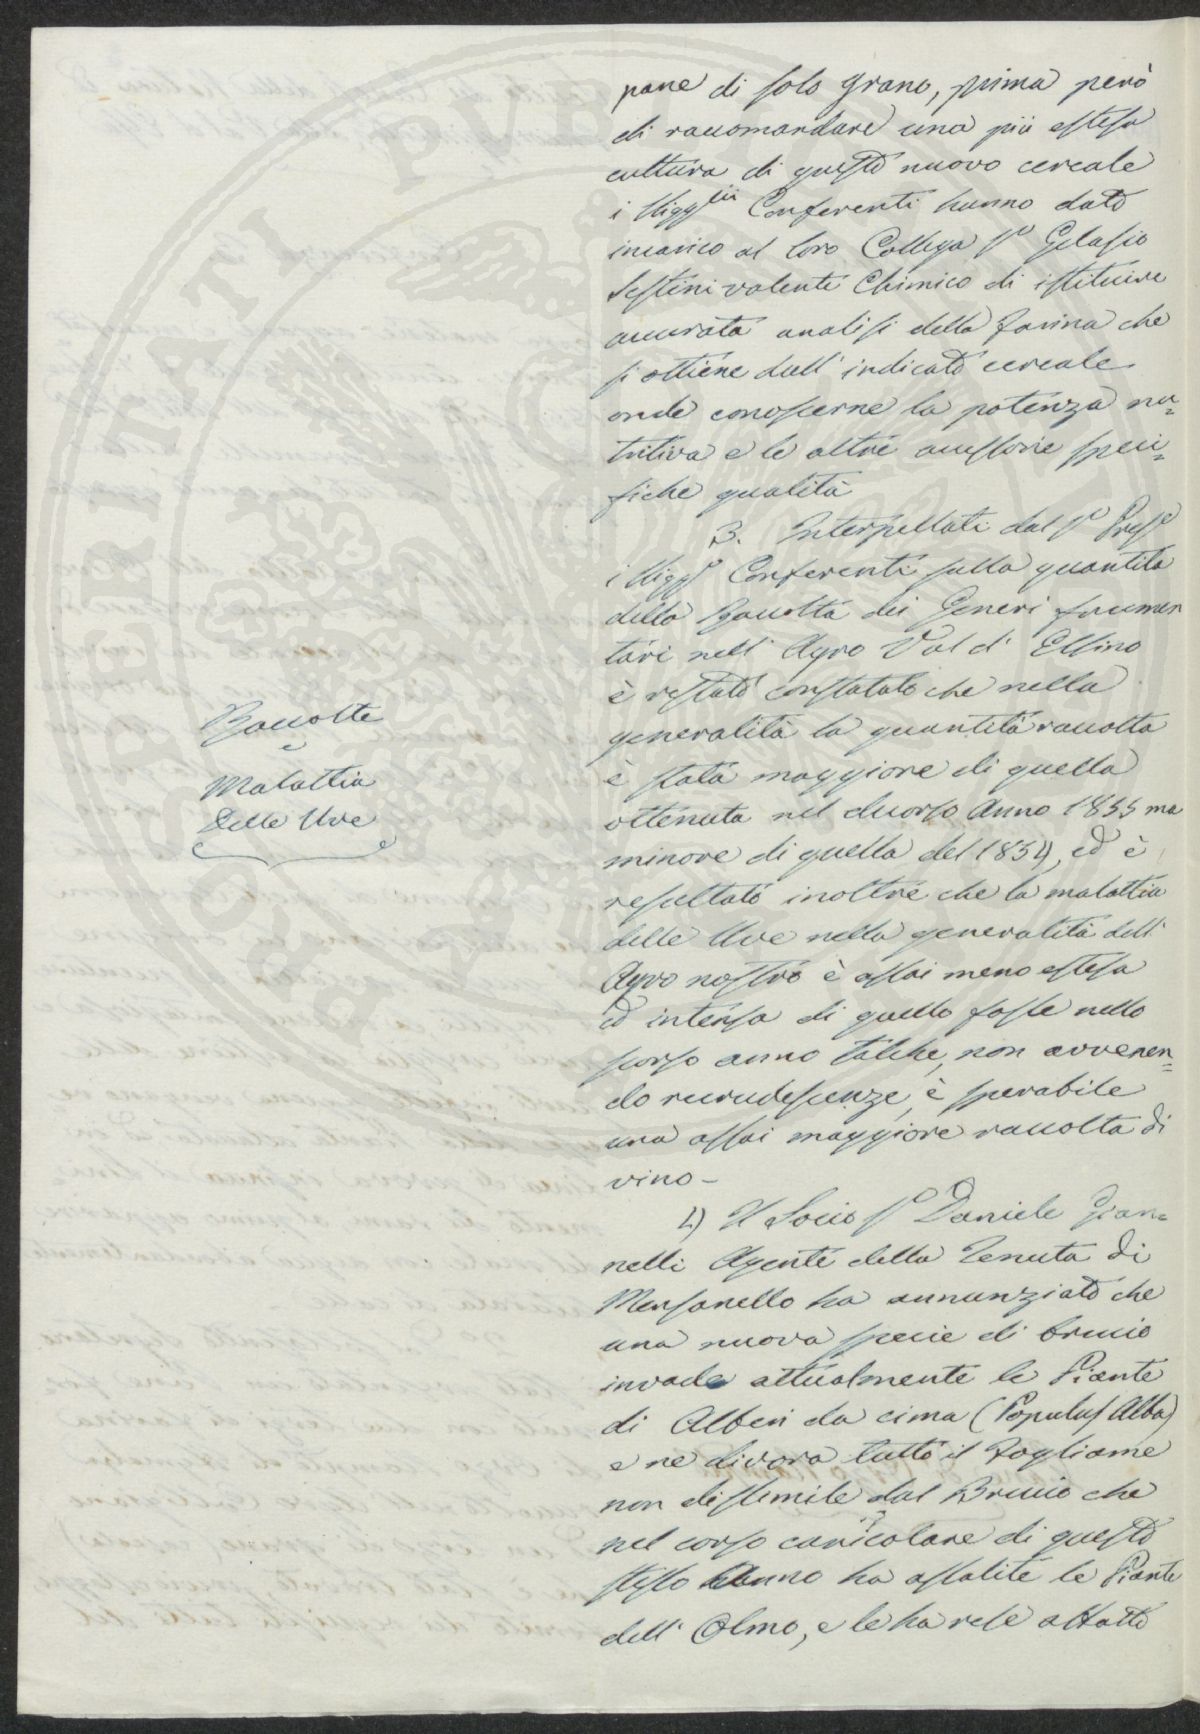 pane di solo grano, prima però
di raccomandare una più estesa
cultura di questo nuovo cereale
i Sigg.ri Conferenti hanno dato
incarico al loro Collega Sr Gelasio
Sestini valente Chimico di istituire
accurata analisi della farina che
si ottiene dall' indicato cereale
onde conoscerne la potenza nu=
tritiva e le altre accessorie speci=
fiche qualità
3. Interpellati dal Sr Prese
i Siggri Conferenti sulla quantità
della Raccolta dei Generi frumen
tari nell' Agro Val d' Elsino
è restato constatato che nella
generalità la quantità raccolta
è stata maggiore di quella
ottenuta nel decorso Anno 1855 ma
minore di quella del 1854, ed è
resultato inoltre che la malattia
delle Uve nella generalità dell'
Agro nostro è assai meno estesa
ed intensa di quello fosse nello
scorso anno talche, non avvenen=
do recrudescenze, è sperabile
una assai maggiore raccolta di
vino -
4) Il Socio Sr Daniele Gian=
nelli Agente della Tenuta di
Mensanello ha annunziato che
una nuova specie di bruco
invade attualmente le Piante
di Alberi da cima (Populus Alba)
e ne divora tutto il fogliame
non dissimile dal Bruco che
nel corso canicolare di questo
stesso Anno ha assalite le Piante
dell' Olmo, e le ha rese affatto
Raccolte
e
Malattia
delle Uve